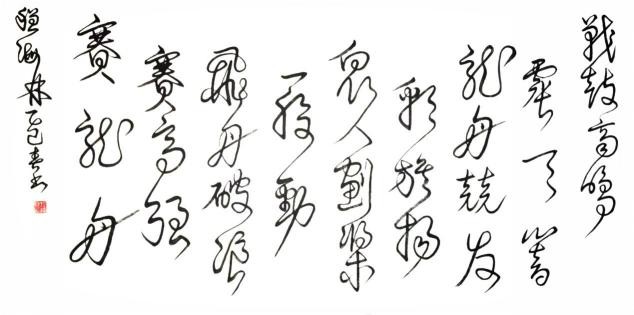 戰鼓高鳴
震天響
龍舟競发
彩旗揚
衆人劃槳
一股勁
飛舟破浪
賽高强
賽龍舟
海林乙巳春书